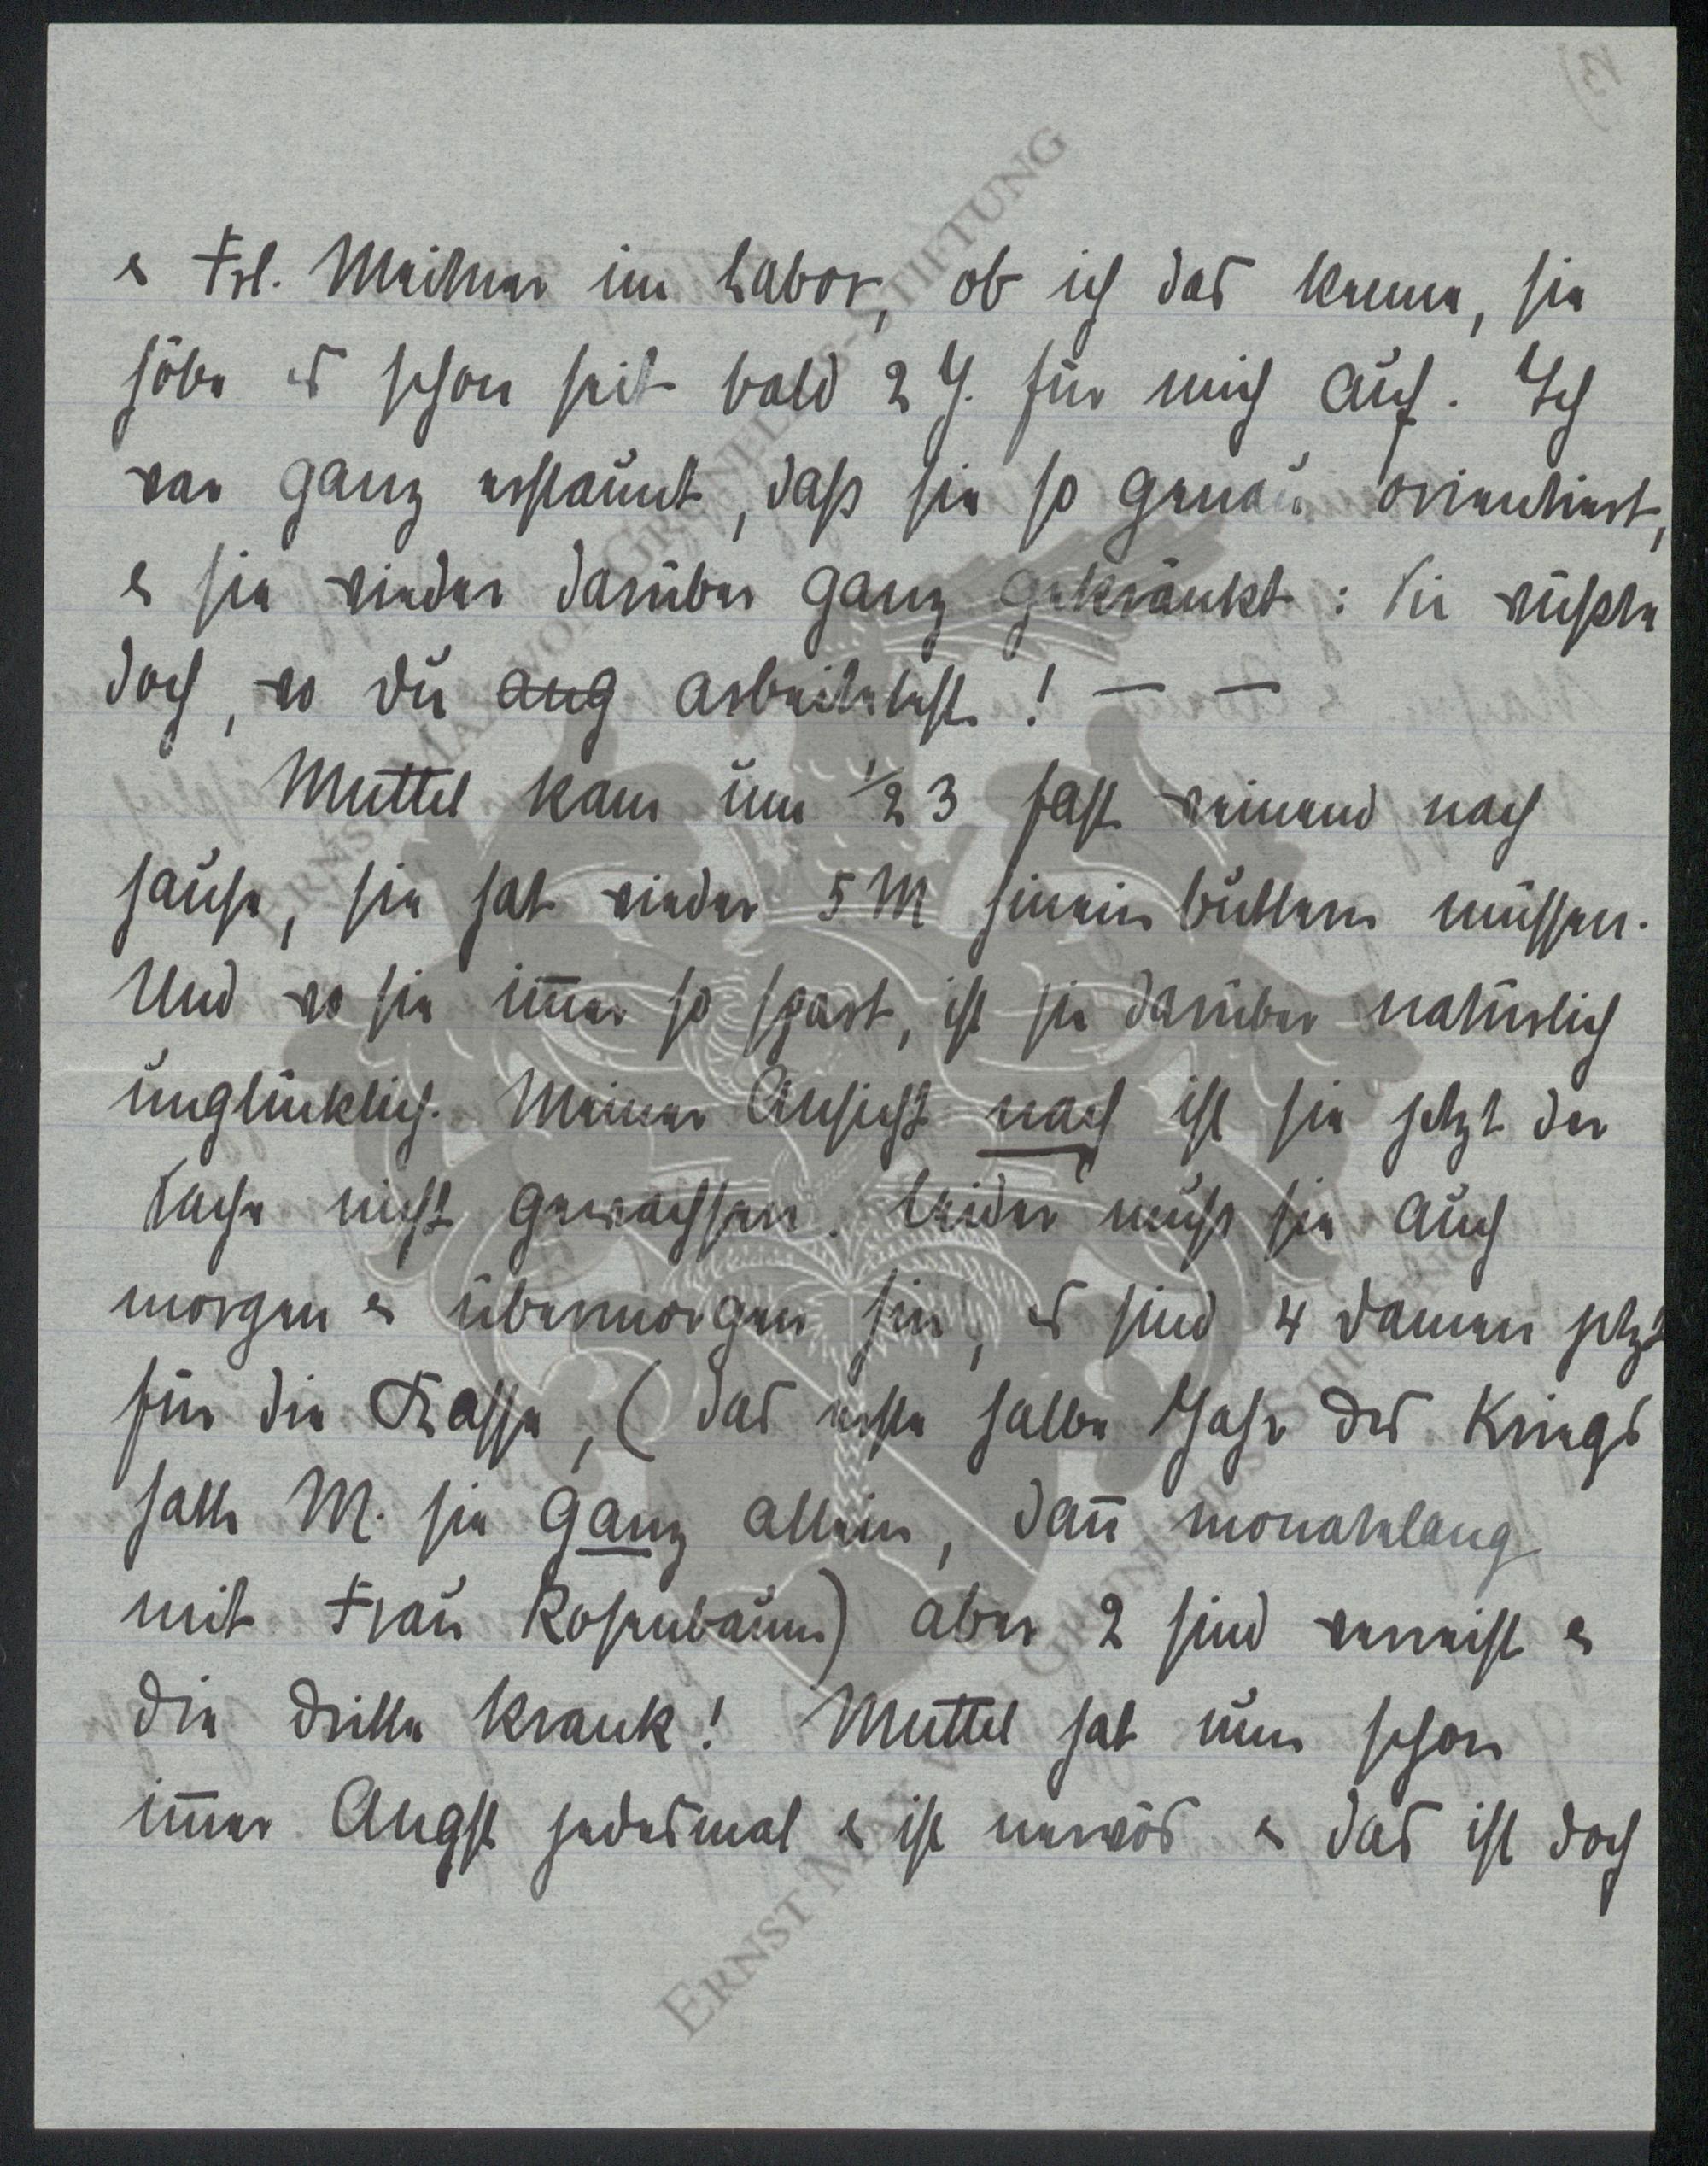 & Frl. Meitner im Labor, ob ich das kenne, sie
höbe es schon seit bald 2 J. für mich auf. Ich
war ganz erstaunt, dass sie so genau orientiert,
& sie wieder darüber ganz gekränkt: Sie wüsste
doch, wo du ang arbeitetest! — —
Muttel kam um 1/2 3 fast weinend nach
hause, sie hat wieder 5 M hinein buttern müssen.
Und wo sie im̅er so spart, ist sie darüber natürlich
unglücklich. Meiner Ansicht nach ist sie jetzt der
Sache nicht gewachsen. Leider muss sie auch
morgen & übermorgen hin, es sind 4 Damen jetzt
für die Kasse, (das erste halbe Jahr des Kriegs
hatte M. sie ganz allein, dan̅ monatelang
mit Frau Rosenbaum) aber 2 sind verreist &
die dritte krank! Muttel hat nun schon
im̅er Angst jedesmal & ist nervös & das ist doch
ERNST MAX VON GRUNELIUS-STIFTUNG
ERNST MAX VON GRUNELIUS-STIFTUNG